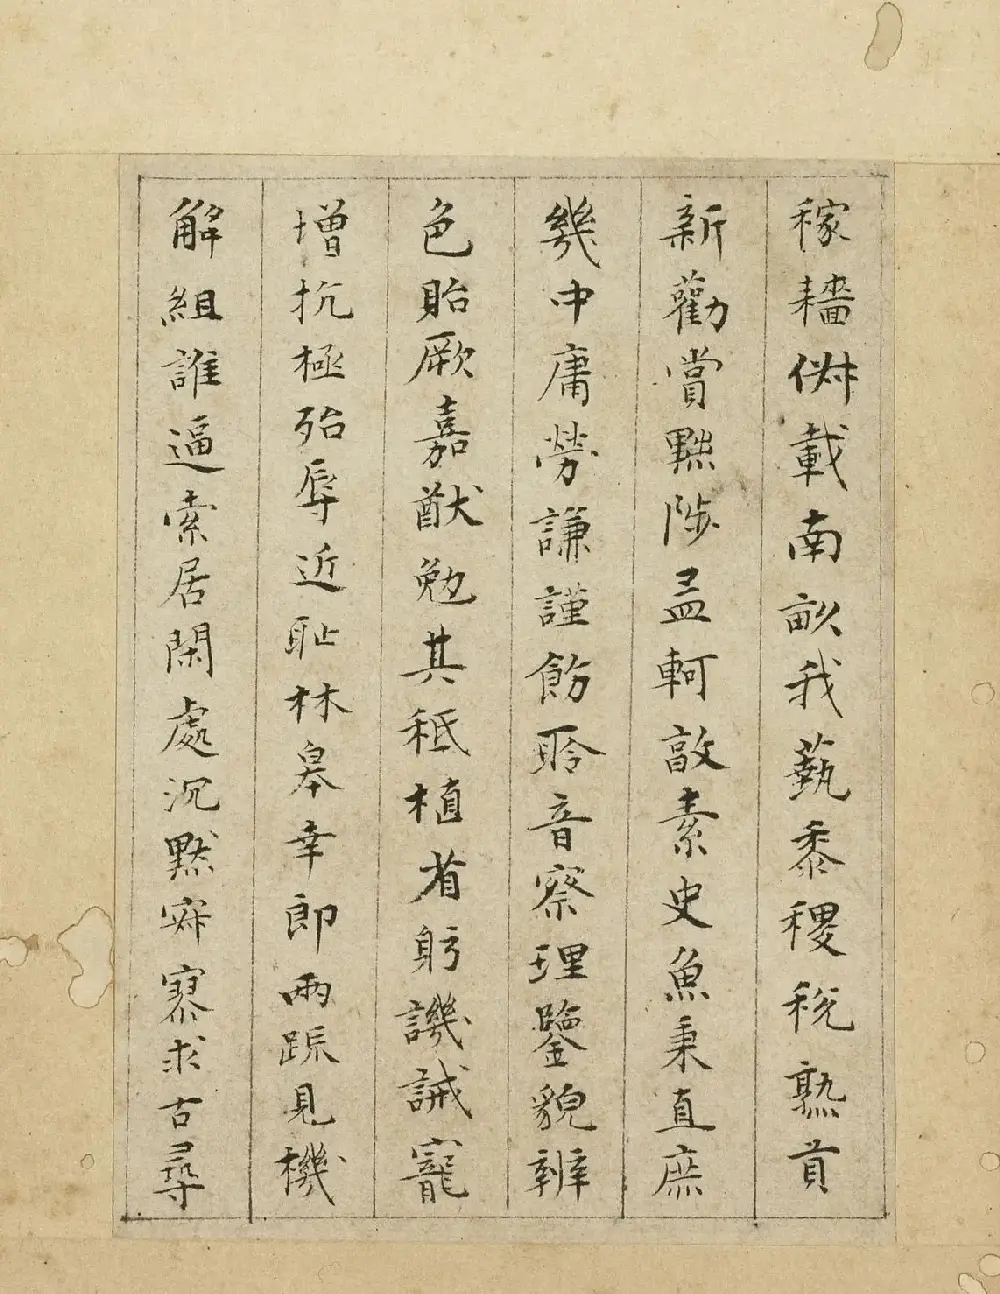 稼穡俶載南畝我藝黍稷稅熟貢
新勸賞黜陟孟軻敦素史魚秉直庶
幾中庸勞謙謹飭聆音察理鑒貌辨
色貽厥嘉猷勉其秪植省躬譏誡寵
增抗極殆辱近恥林皋幸即兩疏見機
解組誰逼索居閑處沉默寂寥求古尋